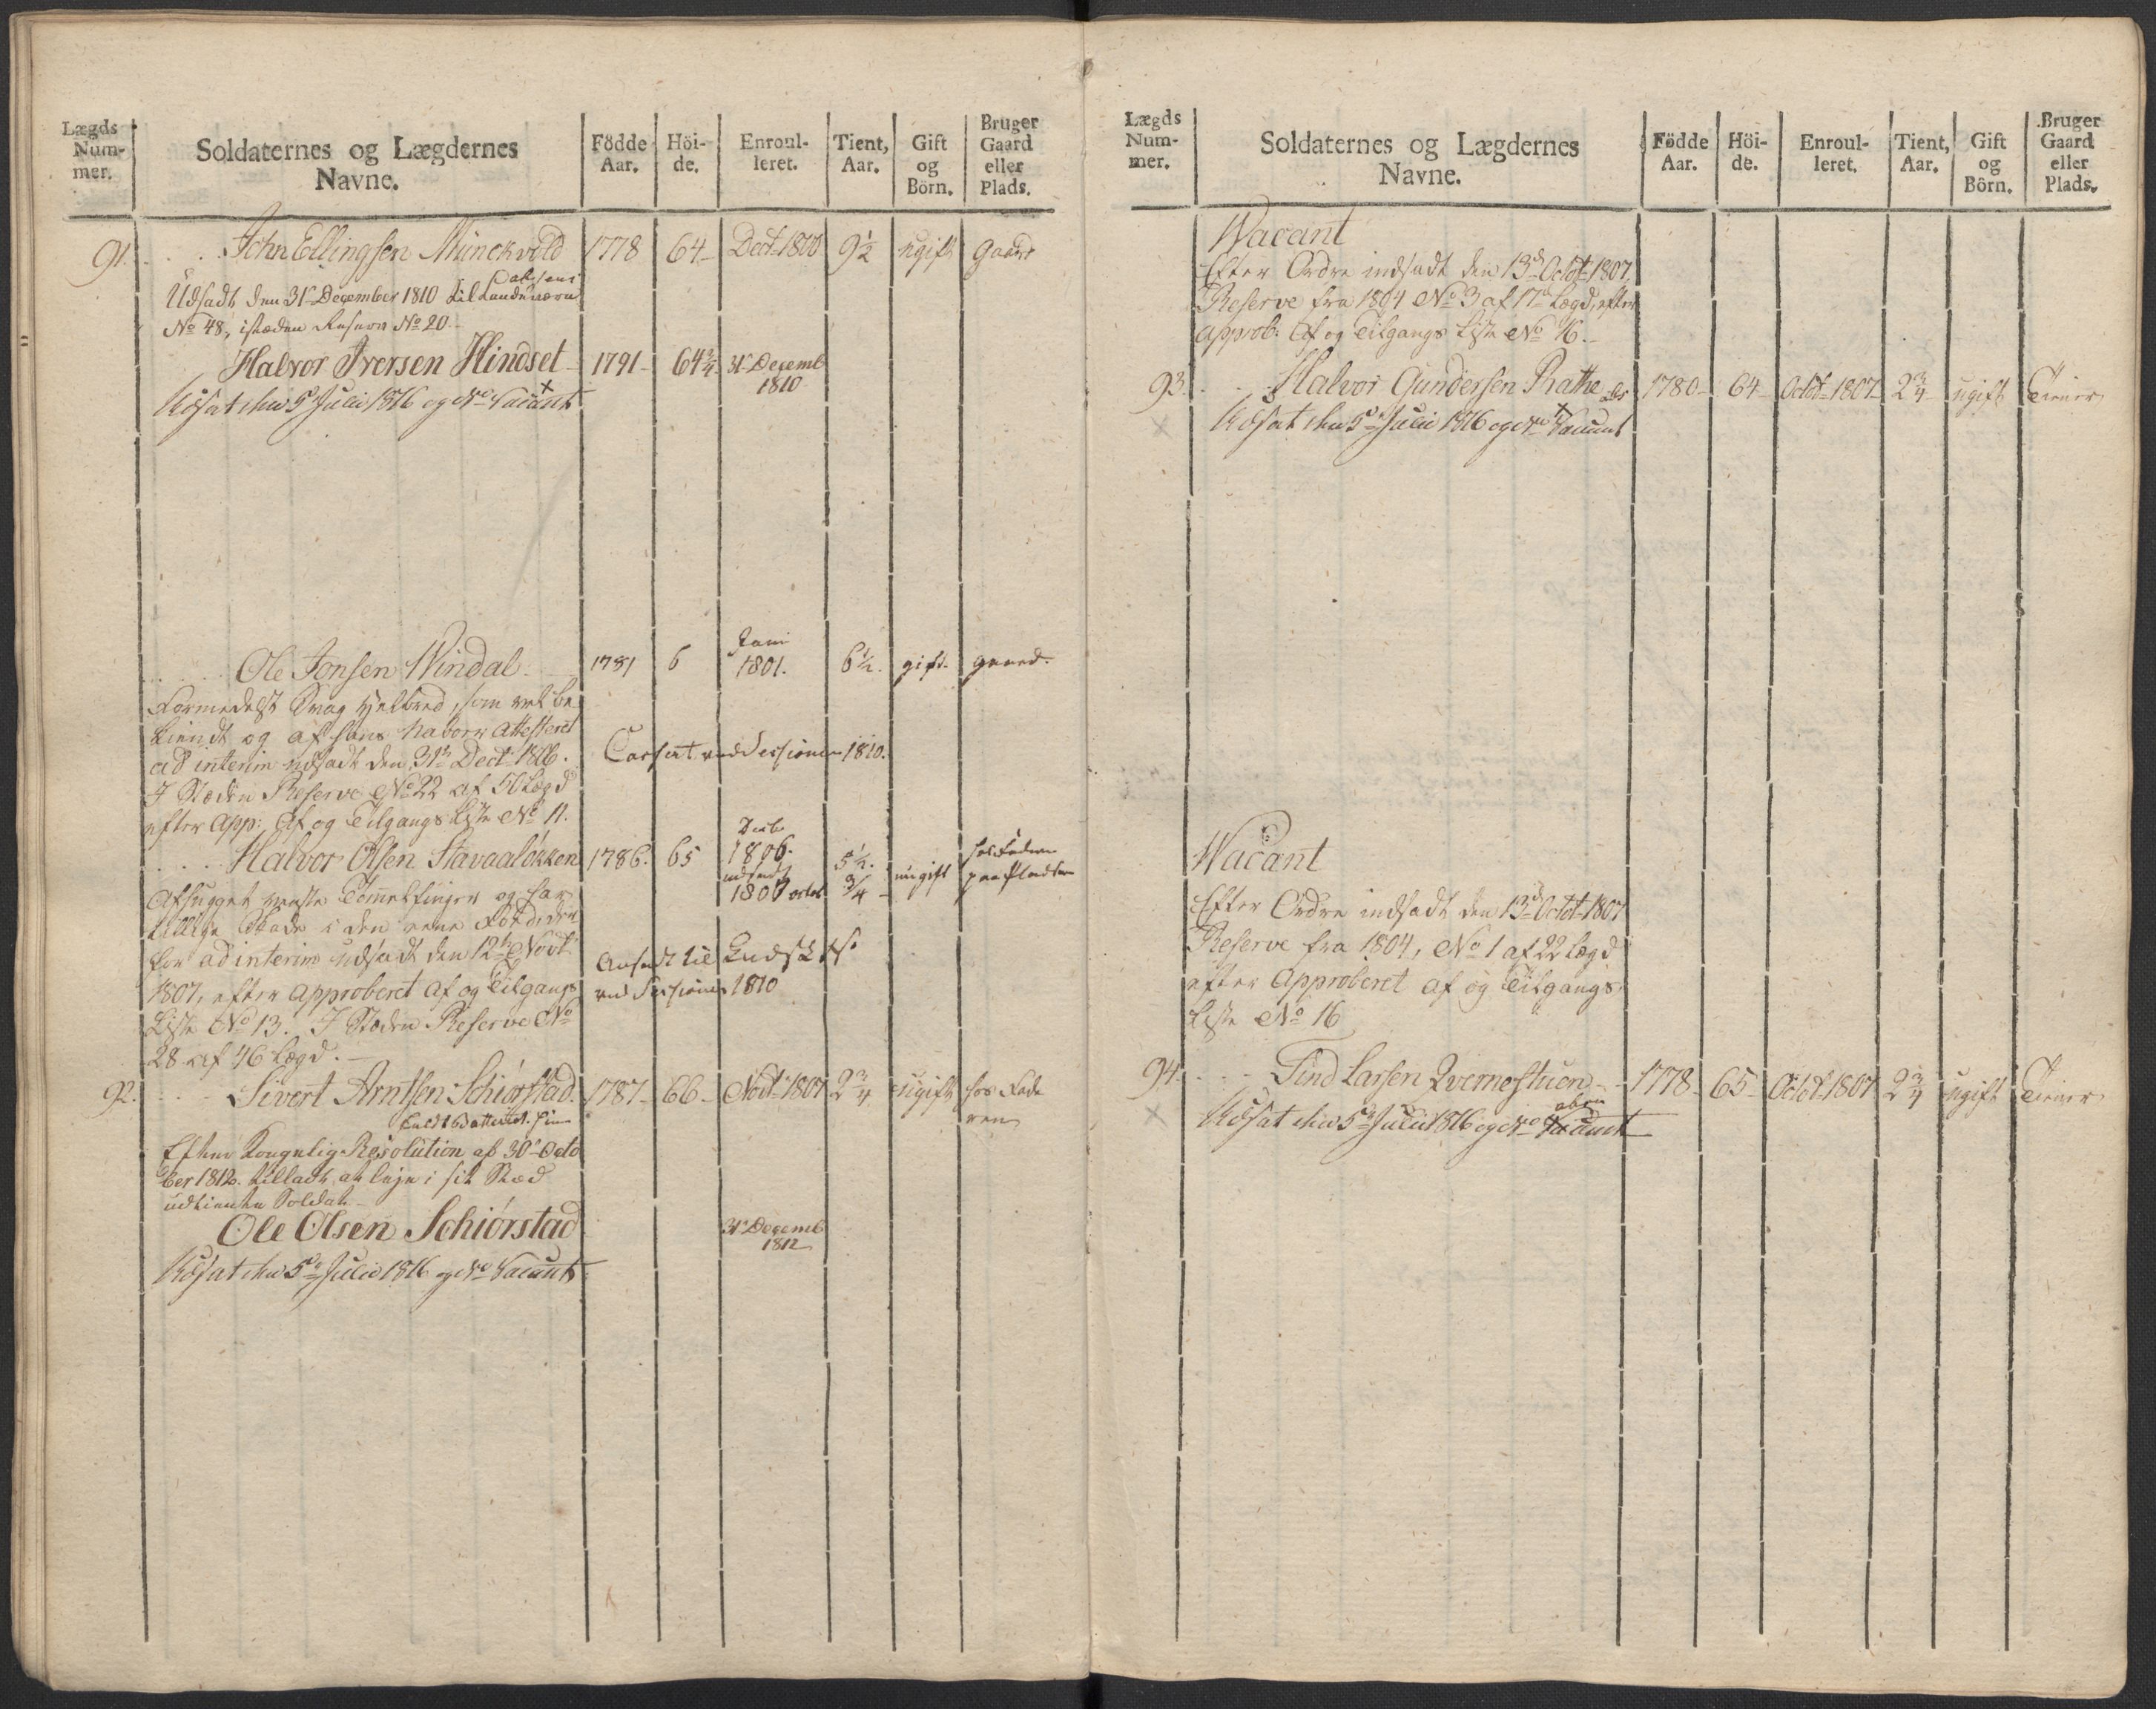 Lægds Num- mer.
Soldaternes og Lægdernes Navne.
Födde Aar.
Höi- de.
Enroul- leret.
Tient, Aar.
Gift og Börn.
Bruger Gaard eller Plads.
91. John Ellingsen Munckvold 1778 64 Decbr 1800 9½ ugift Gaard
Udsadt den 31te December 1810 til Landeværn
No 48, istæden Reserve No 20.
Halvor Iversen Hindset 1791 64¾ 31te Decemb 1810
Udsat den 5te Julii 1816 og er Vacant
Ole Jonsen Windal 1781 6 Juni 1801. 6½. gift. gaard.
Formedelst svag Helbred, som vel be
kiendt og af hans Naboer Attesteret
ad interim udsadt den 31te Decbr 1806.
I Stæden Reserve No 22 af 50 Lægd
efter App: Af og Tilgangs Liste No 11.
Cassert ved Sessionen 1810.
Halvor Olsen Stavaaløkken 1786. 65 Decb 1806. udsadt 1807 octob 5½. ¾ ungift hos Faderen paa Pladsen
Afhugget venste Tommelfinger og har
tillige Skade i den ene Fod, der
for ad interim udsadt den 12te Novbr
1807, efter Approberet Af og Tilgangs
Liste No 13. I Stæden Reserve No
28 af 46 Lægd.
Ansadt til
ved Sessionen 1810
92. Sivert Arntsen Schiørstad 1787 66 Novbr 1807 2¾ ugift hos Fade ren
Efter Kongelig Resolution af 30te Octo
ber 1812. tilladt at leje i sit Stæd
udtiente Soldat
Ole Olsen Schiørstad 31te Decemb 1812
Udsat den 5te Julii 1816 og er Vacant
Lægds Num- mer.
Soldaternes og Lægdernes Navne.
Födde Aar.
Höi- de.
Enroul- leret.
Tient, Aar.
Gift og Börn.
Bruger Gaard eller Plads.
Wacant
Efter Ordre indsadt den 13de Octobr 1807,
Reserve fra 1804 No 3 af 17de Lægd, efter
Approb: Af og Tilgangs Liste No 16.
93. Halvor Gundersen Rathe 1780 64 Octobr 1807 2¾ ugift Tiener
Udsat den 5te Julii 1816 og er Vacant
Wacant
Efter Ordre indsadt den 13de Octobr 1807
Reserve fra 1804, No 1 af 22 Lægd
efter Approberet Af og Tilgangs
Liste No 16
94. Find Larsen Qvernestuen 1778 65 Octobr 1807 2¾ ugift Tiener
Udsat den 5te Julii 1816 og er Vacant